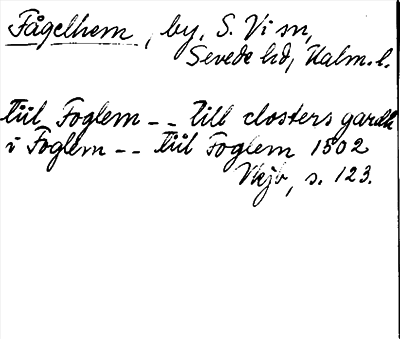 Fågelhem, by, S. Vi sn,
Sevede hd, Kalm. l.
Tiil Foglem -- till closters gardh
i Foglem -- Tiil Foglem 1502
Vkjb, s. 123.